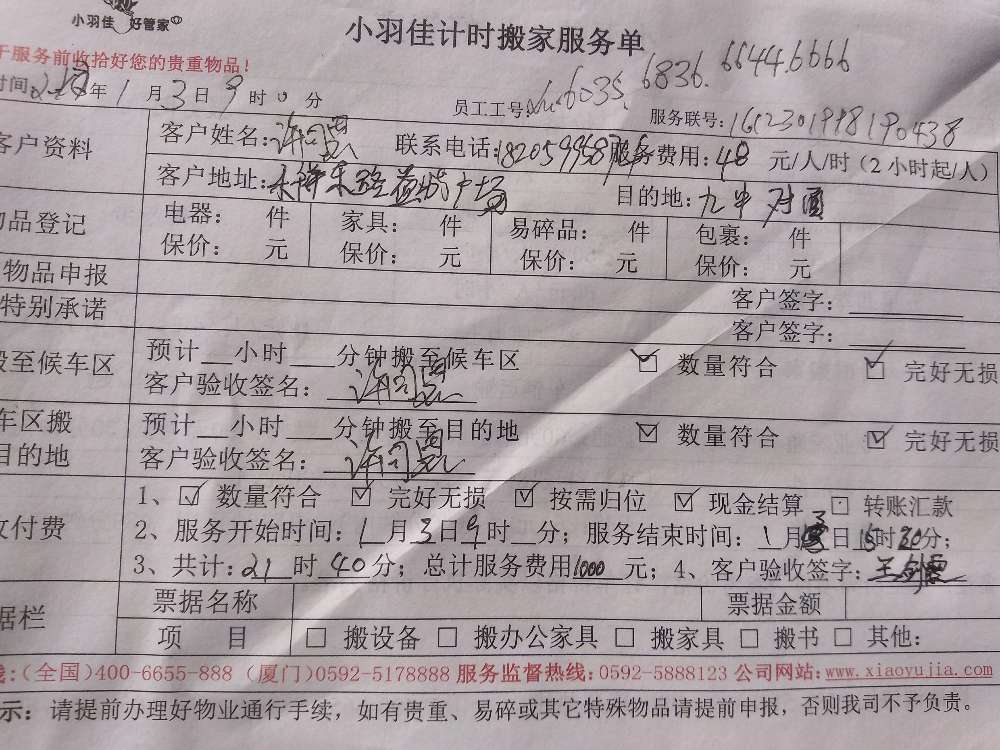 小羽佳 好管家
小羽佳计时搬家服务单
于服务前收拾好您的贵重物品!
时间: 年1月3日9时0分
员工工号: 6035. 6836. 6644.6666
服务联号:
客户资料
客户姓名: 联系电话: 服务费用:48 元/人/时(2小时起/人)
客户地址: 广场 目的地:
物品登记
电器: 件 家具: 件 易碎品: 件 包裹: 件
保价: 元 保价: 元 保价: 元 保价: 元
物品申报 客户签字:
特别承诺 客户签字:
搬至候车区
预计 小时 分钟搬至候车区 数量符合 完好无损
客户验收签名:
车区搬
目的地
预计 小时 分钟搬至目的地 数量符合 完好无损
客户验收签名:
收付费
1、数量符合 完好无损 按需归位 现金结算 转账汇款
2、服务开始时间:1月3日9时 分;服务结束时间:1月3日15时20分;
3、共计:21时40分;总计服务费用1000元;4、客户验收签字:王剑霞
据栏
票据名称 票据金额
项 目 搬设备 搬办公家具 搬家具 搬书 其他:
线:(全国)400-6655-888 (厦门)0592-5178888 服务监督热线:0592-5888123 公司网站:www.xiaoyujia.com
示:请提前办理好物业通行手续,如有贵重、易碎或其它特殊物品请提前申报,否则我司不予负责。